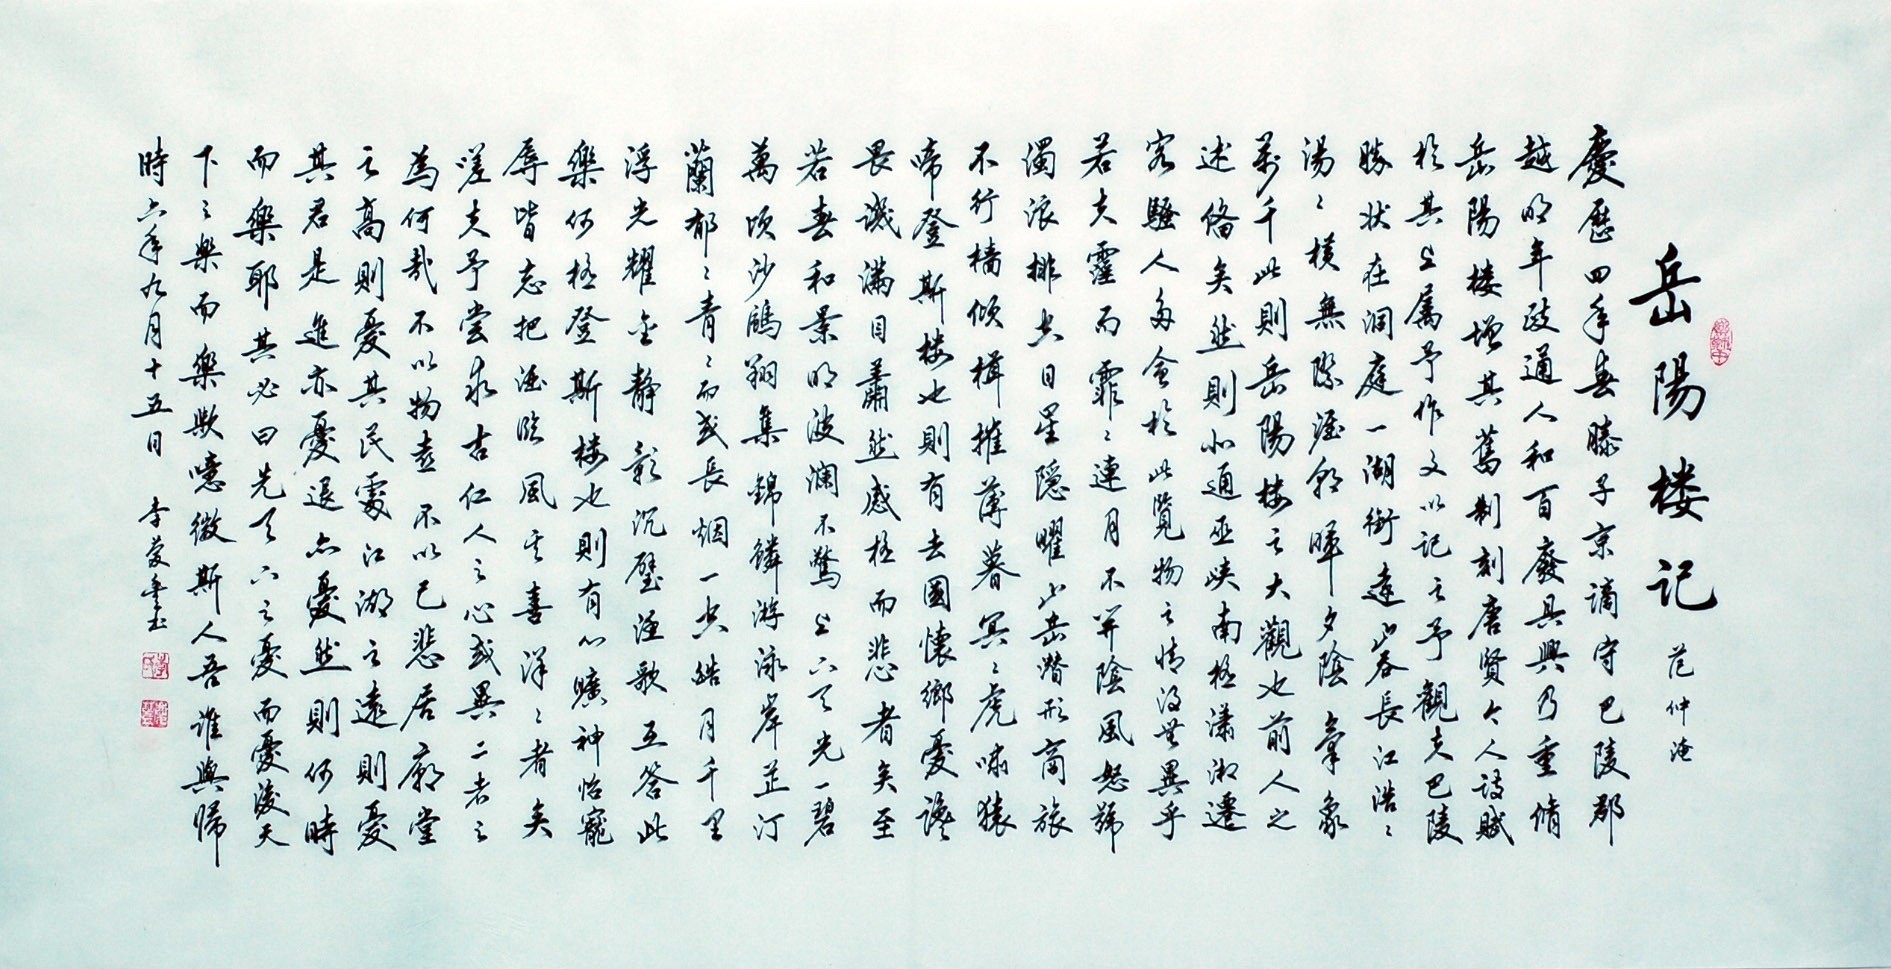 岳陽楼记 范仲淹
慶歷四年春滕子京謫守巴陵郡
越明年政通人和百廢具興乃重脩
岳陽楼增其舊制刻唐賢今人詩賦
於其上属予作文以記之予觀夫巴陵
勝状在洞庭一湖銜遠山吞長江浩〻
湯〻横無際涯朝暉夕陰氣象
萬千此則岳陽楼之大觀也前人之
述俻矣然則北通巫峡南極瀟湘遷
客騷人多会於此覽物之情得無異乎
若夫霪雨霏〻連月不開陰風怒號
濁浪排空日星隠曜山岳潜形商旅
不行檣傾楫摧薄暮冥〻虎嘯猿
啼登斯楼也則有去國懐鄉憂讒
畏譏滿目蕭然感極而悲者矣至
若春和景明波澜不驚上下天光一碧
萬頃沙鷗翔集錦鱗游泳岸芷汀
蘭郁〻青〻而或長烟一空皓月千里
浮光耀金静影沉璧渔歌互答此
樂何極登斯楼也則有心曠神怡寵
辱皆忘把酒临風其喜洋〻者矣
嗟夫予嘗求古仁人之心或異二者之
為何哉不以物喜不以己悲居廟堂
之高則憂其民處江湖之遠則憂
其君是進亦憂退亦憂然則何時
而樂耶其必曰先天下之憂而憂後天
下之樂而樂歟噫微斯人吾誰與歸
時六年九月十五日 李